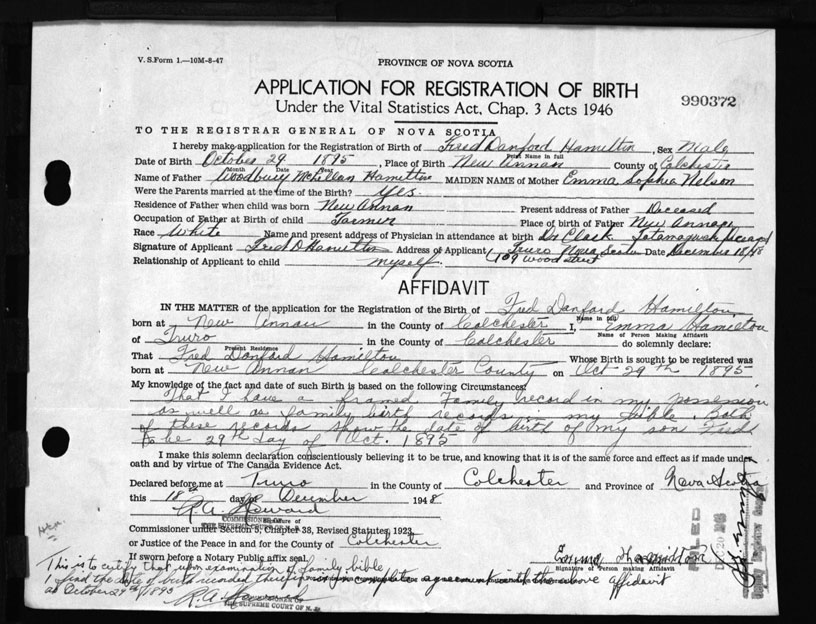 V. S. Form 1.—10M-8-47
PROVINCE OF NOVA SCOTIA
APPLICATION FOR REGISTRATION OF BIRTH
Under the Vital Statistics Act, Chap. 3 Acts 1946
990372
TO THE REGISTRAR GENERAL OF NOVA SCOTIA
I hereby make application for the Registration of Birth of Fred Danford Hamilton, Sex Male
Print Name in full
Date of Birth October 29 1895, Place of Birth New Annan County of Colchester
Month Date Year
Name of Father Woodbury McLellan Hamilton MAIDEN NAME of Mother Emma Sophia Nelson
Were the Parents married at the time of the Birth? Yes.
Residence of Father when child was born New Annan Present address of Father Deceased
Occupation of Father at Birth of child Farmer Place of birth of Father New Annan
Race White Name and present address of Physician in attendance at birth Dr Clark Tatamagouche
Signature of Applicant Fred D Hamilton Address of Applicant Truro Nova Scotia Date December 18/48
109 Wood Street
Relationship of Applicant to child myself
AFFIDAVIT
IN THE MATTER of the application for the Registration of the Birth of Fred Danford Hamilton,
Name in full
born at New Annan in the County of Colchester I, Emma Hamilton
Name of Person Making Affidavit
of Truro in the County of Colchester do solemnly declare:
Present Residence
That Fred Danford Hamilton Whose Birth is sought to be registered was
born at New Annan Colchester County on Oct 29th 1895
My knowledge of the fact and date of such Birth is based on the following Circumstances:
That I have a framed Family record in my possession
as well as family birth records in my Bible. Both
of these records show the date of birth of my son Fred
to be 29th day of Oct. 1895
I make this solemn declaration conscientiously believing it to be true, and knowing that it is of the same force and effect as if made under
oath and by virtue of The Canada Evidence Act.
Declared before me at Truro in the County of Colchester and Province of Nova Scotia
this 18th day of December 1948
R. A. Howard
Signature of
Commissioner under Section 5, Chapter 38, Revised Statutes, 1923
or Justice of the Peace in and for the County of Colchester
If sworn before a Notary Public affix seal
Emma Hamilton
Signature of Person making Affidavit
This is to certify that upon examination of family bible
I find the date of birth recorded therein in complete agreement with the above affidavit
as October 29th 1895
R. A. Howard
THE SUPREME COURT OF N. S.
FILED